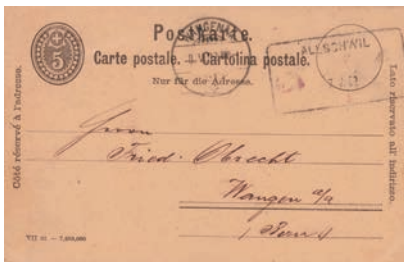 Postkarte.
Carte postale. – Cartolina postale.
Nur für die Adresse.
5
ALLSCHWIL
Côté réservé à l'adresse.
Lato riservato all' indirizzo.
Herrn
Fried. Obrecht
Wangen a/a
(Bern)